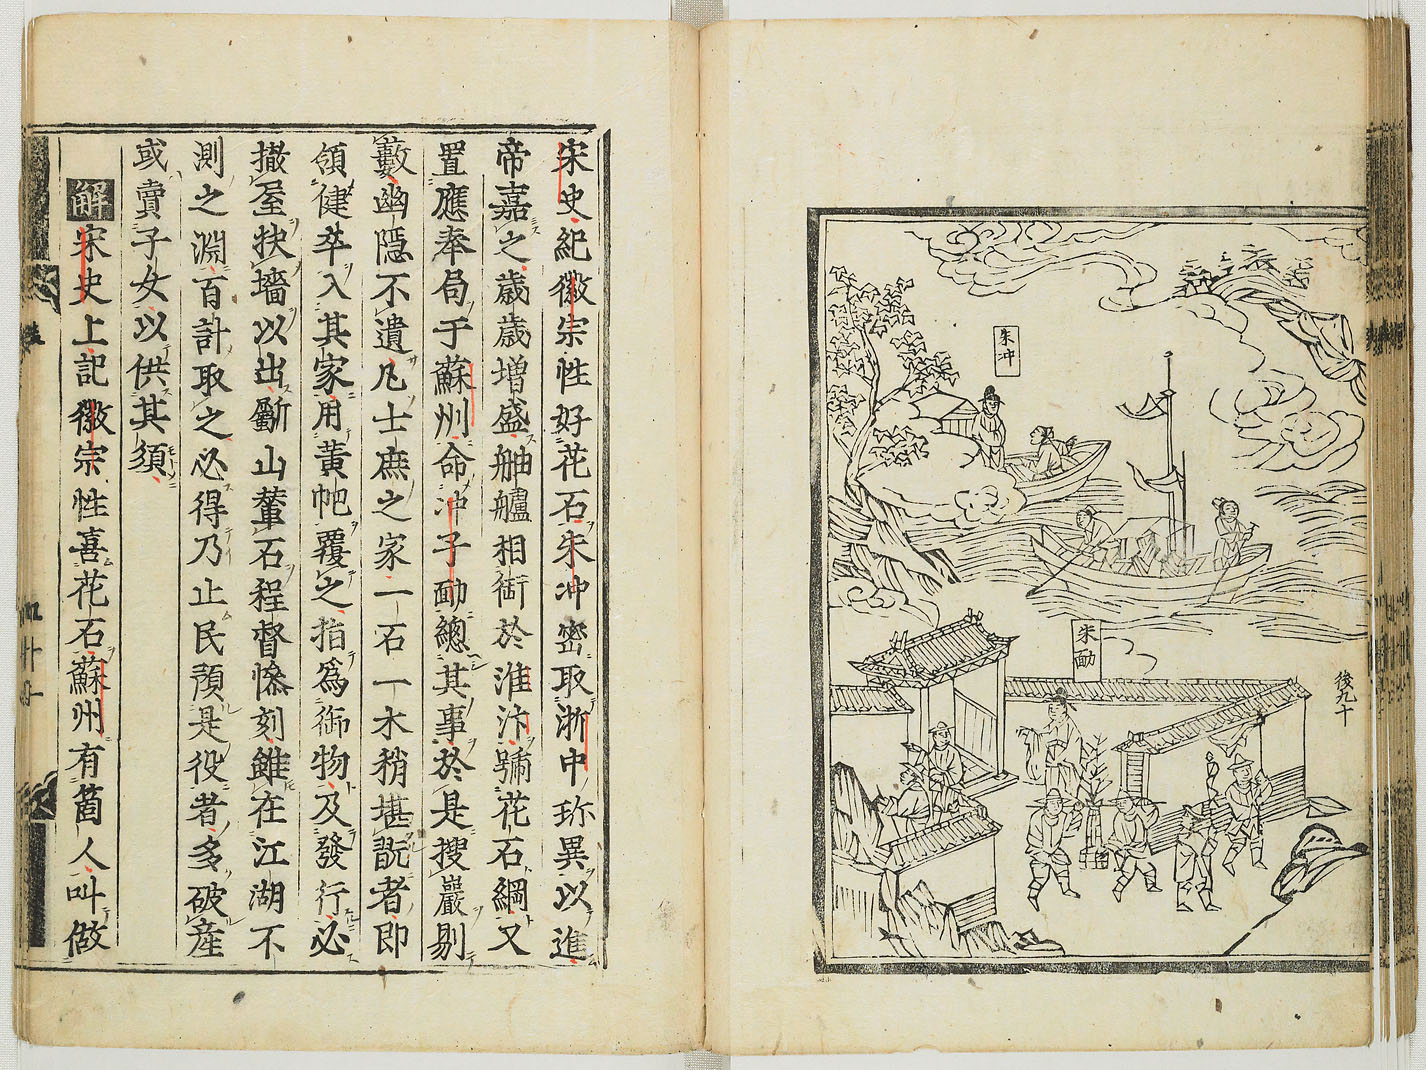 朱冲
朱勔
後九十
宋史紀徽宗性好花石朱冲密取浙中珎異以進
帝嘉之歳歳增盛舳艫相銜於淮汴號花石綱又
置應奉局于蘇州命冲子勔總其事於是搜巖剔
藪幽隱不遺凡士庶之家一石一木稍堪翫者即
領健卒入其家用黃帊覆之指爲御物及發行必
撤屋抉墻以出斸山輦石程督慘刻雖在江湖不
測之淵百計取之必得乃止民預是役者多破產
或賣子女以供其須
解宋史上記徽宗性喜花石蘇州有箇人叫做